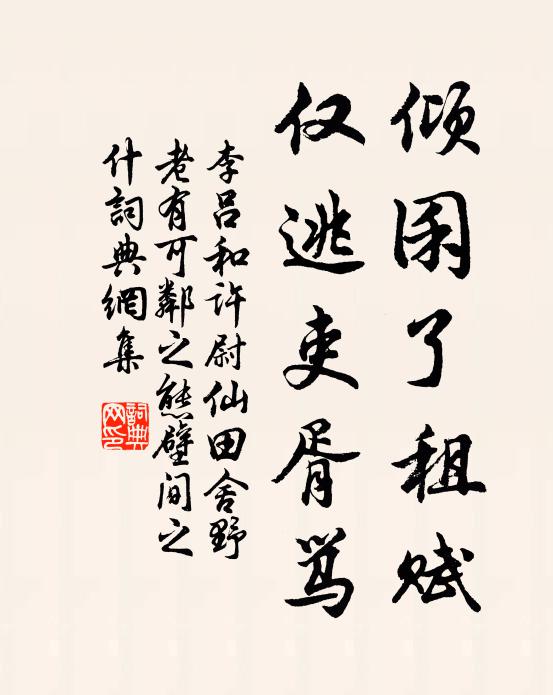 倾囷了租赋
仅逃吏胥骂
李吕和许尉仙田舍野
老有可鄰之態壁间之
什詞典網集
詞典
网印